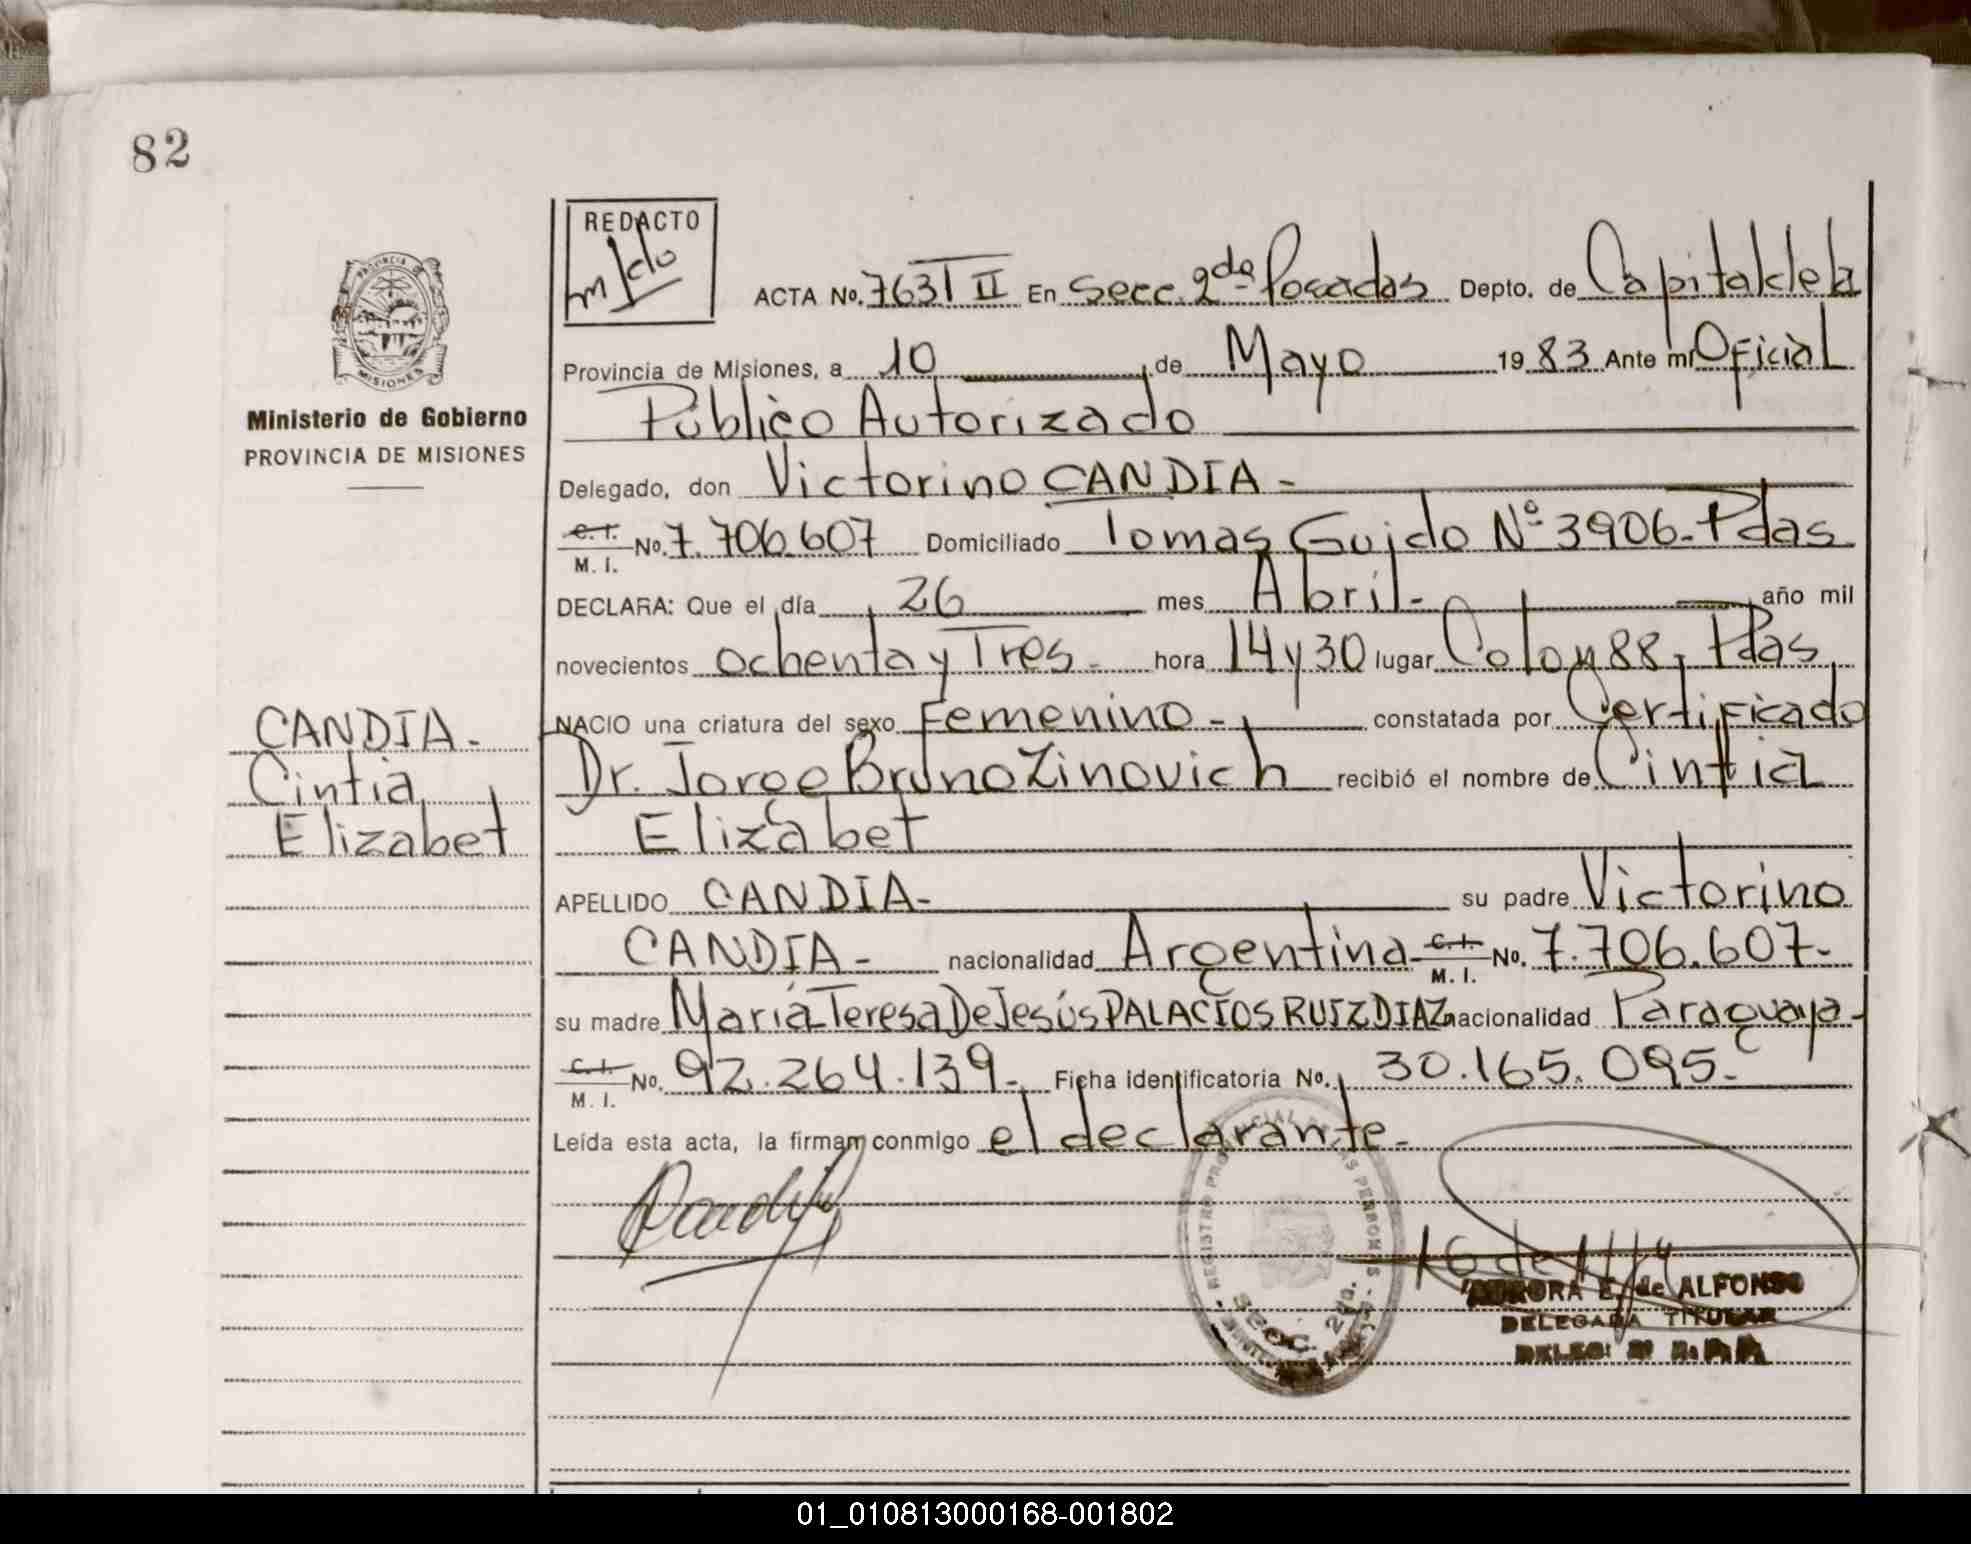 82
REDACTO
PROVINCIA DE
MISIONES
Ministerio de Gobierno
PROVINCIA DE MISIONES
ACTA No. 763 T II En Secc. 2da Posadas Depto. de Capital de la
Provincia de Misiones, a 10 de Mayo 1983 Ante mí Oficial
Público Autorizado
Delegado, don Victorino CANDIA -
C. I. M. I. No. 7.706.607 Domiciliado Tomas Guido Nº 3906-Pdas
DECLARA: Que el día 26 mes Abril- año mil
novecientos ochenta y Tres- hora 14 y 30 lugar Colon 88, Pdas
NACIO una criatura del sexo Femenino - constatada por Certificado
Dr. Jorge Bruno Zinovich recibió el nombre de Cintia
Elizabet
CANDIA-
Cintia
Elizabet
APELLIDO CANDIA- su padre Victorino
CANDIA- nacionalidad Argentina C. I. M. I. No. 7.706.607-
su madre María Teresa De Jesús PALACIOS RUIZ DIAZ nacionalidad Paraguaya-
C. I. M. I. No. 92.264.139- Ficha identificatoria No. 30.165.095-
Leída esta acta, la firman conmigo el declarante-
REGISTRO PROVINCIAL DE LAS PERSONAS
SECC. 2da.
AURORA E. de ALFONSO
DELEGADA TITULAR
01_010813000168-001802